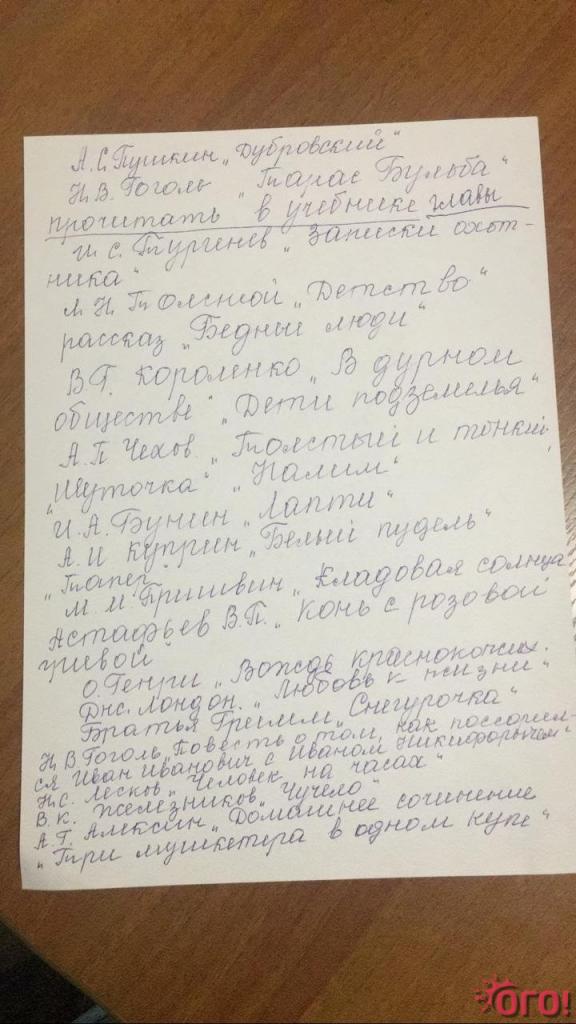 А.С. Пушкин „Дубровский"
Н.В. Гоголь „Тарас Бульба"
прочитать в учебнике главы
И.С. Тургенев „Записки охот-
ника"
Л.Н. Толстой „Детство"
рассказ „Бедные люди"
В.Г. Короленко „В дурном
обществе" „Дети подземелья"
А.П. Чехов. „Толстый и тонкий",
„Шуточка" „Налим"
И.А. Бунин „Лапти"
А.И. Куприн „Белый пудель"
„Тапер"
М.М. Пришвин „Кладовая солнца
Астафьев В.П. „Конь с розовой
гривой"
О.Генри „Вождь краснокожих.
Дж. Лондон. „Любовь к жизни"
Братья Гримм „Снегурочка"
Н.В. Гоголь „Повесть о том, как поссорил-
ся Иван Иванович с Иваном Никифорычем"
Н.С. Лесков „Человек на часах"
В.К. Железников „Чучело"
А.Г. Алексин „Домашнее сочинение
„Три мушкетера в одном купе"
ОГО!